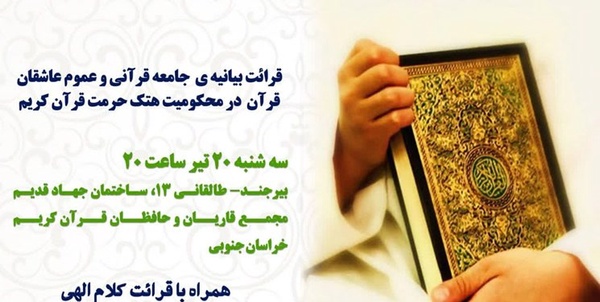 قرائت بیانیه ی جامعه قرآنی و عموم عاشقان
قرآن در محکومیت هتک حرمت قرآن کریم
سه شنبه ۲۰ تیر ساعت ۲۰
بیرجند- طالقانی ۱۳، ساختمان جهاد قدیم
مجمع قاریان و حافظان قرآن کریم
خراسان جنوبی
همراه با قرائت کلام الهی